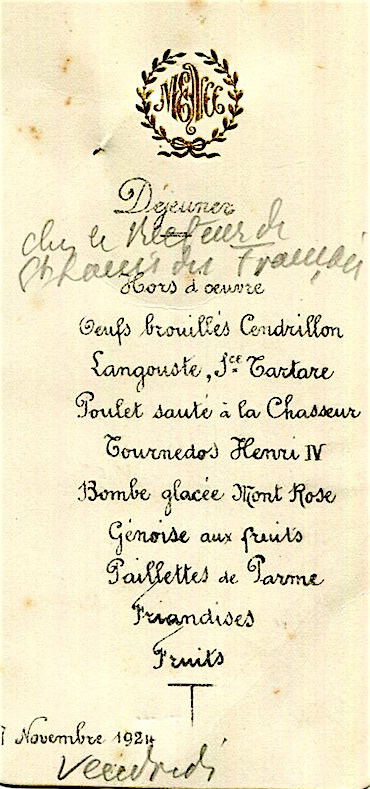 Déjeuner
chez le Recteur de
St Louis des Français
Hors d'œuvre
Oeufs brouillés Cendrillon
Langouste, Sce Tartare
Poulet sauté à la Chasseur
Tournedos Henri IV
Bombe glacée Mont Rose
Génoise aux fruits
Paillettes de Parme
Friandises
Fruits
7 Novembre 1924
Vendredi